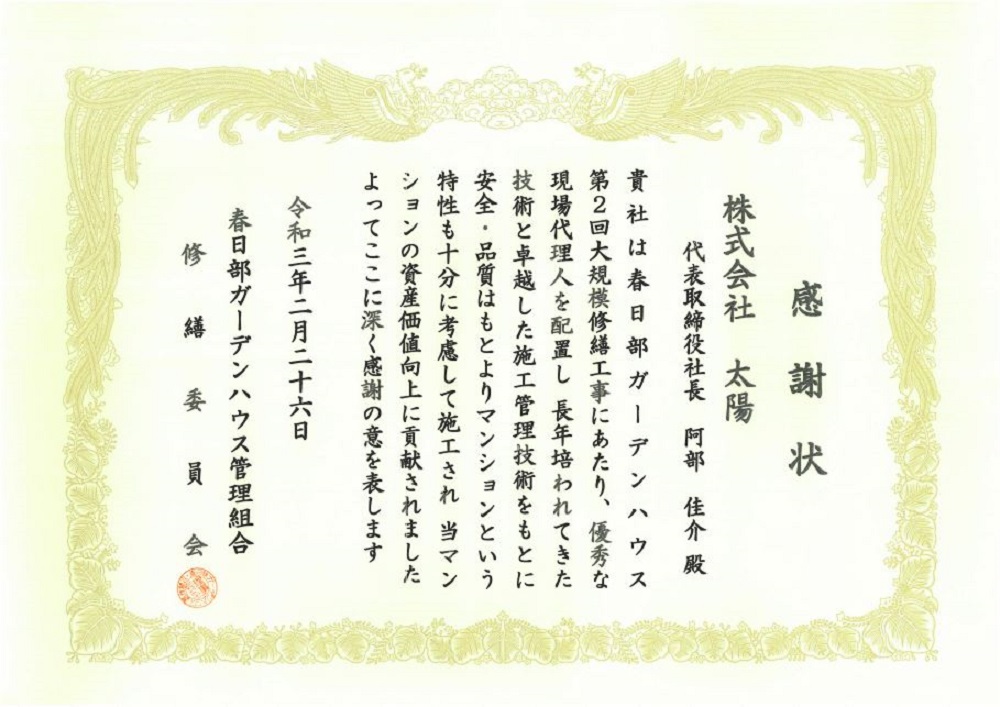 感謝状
株式会社 太陽
代表取締役社長 阿部 佳介 殿
貴社は春日部ガーデンハウス
第2回大規模修繕工事にあたり、優秀な
現場代理人を配置し 長年培われてきた
技術と卓越した施工管理技術をもとに
安全・品質はもとよりマンションという
特性も十分に考慮して施工され 当マン
ションの資産価値向上に貢献されました
よってここに深く感謝の意を表します
令和三年二月二十六日
春日部ガーデンハウス管理組合
修繕委員会